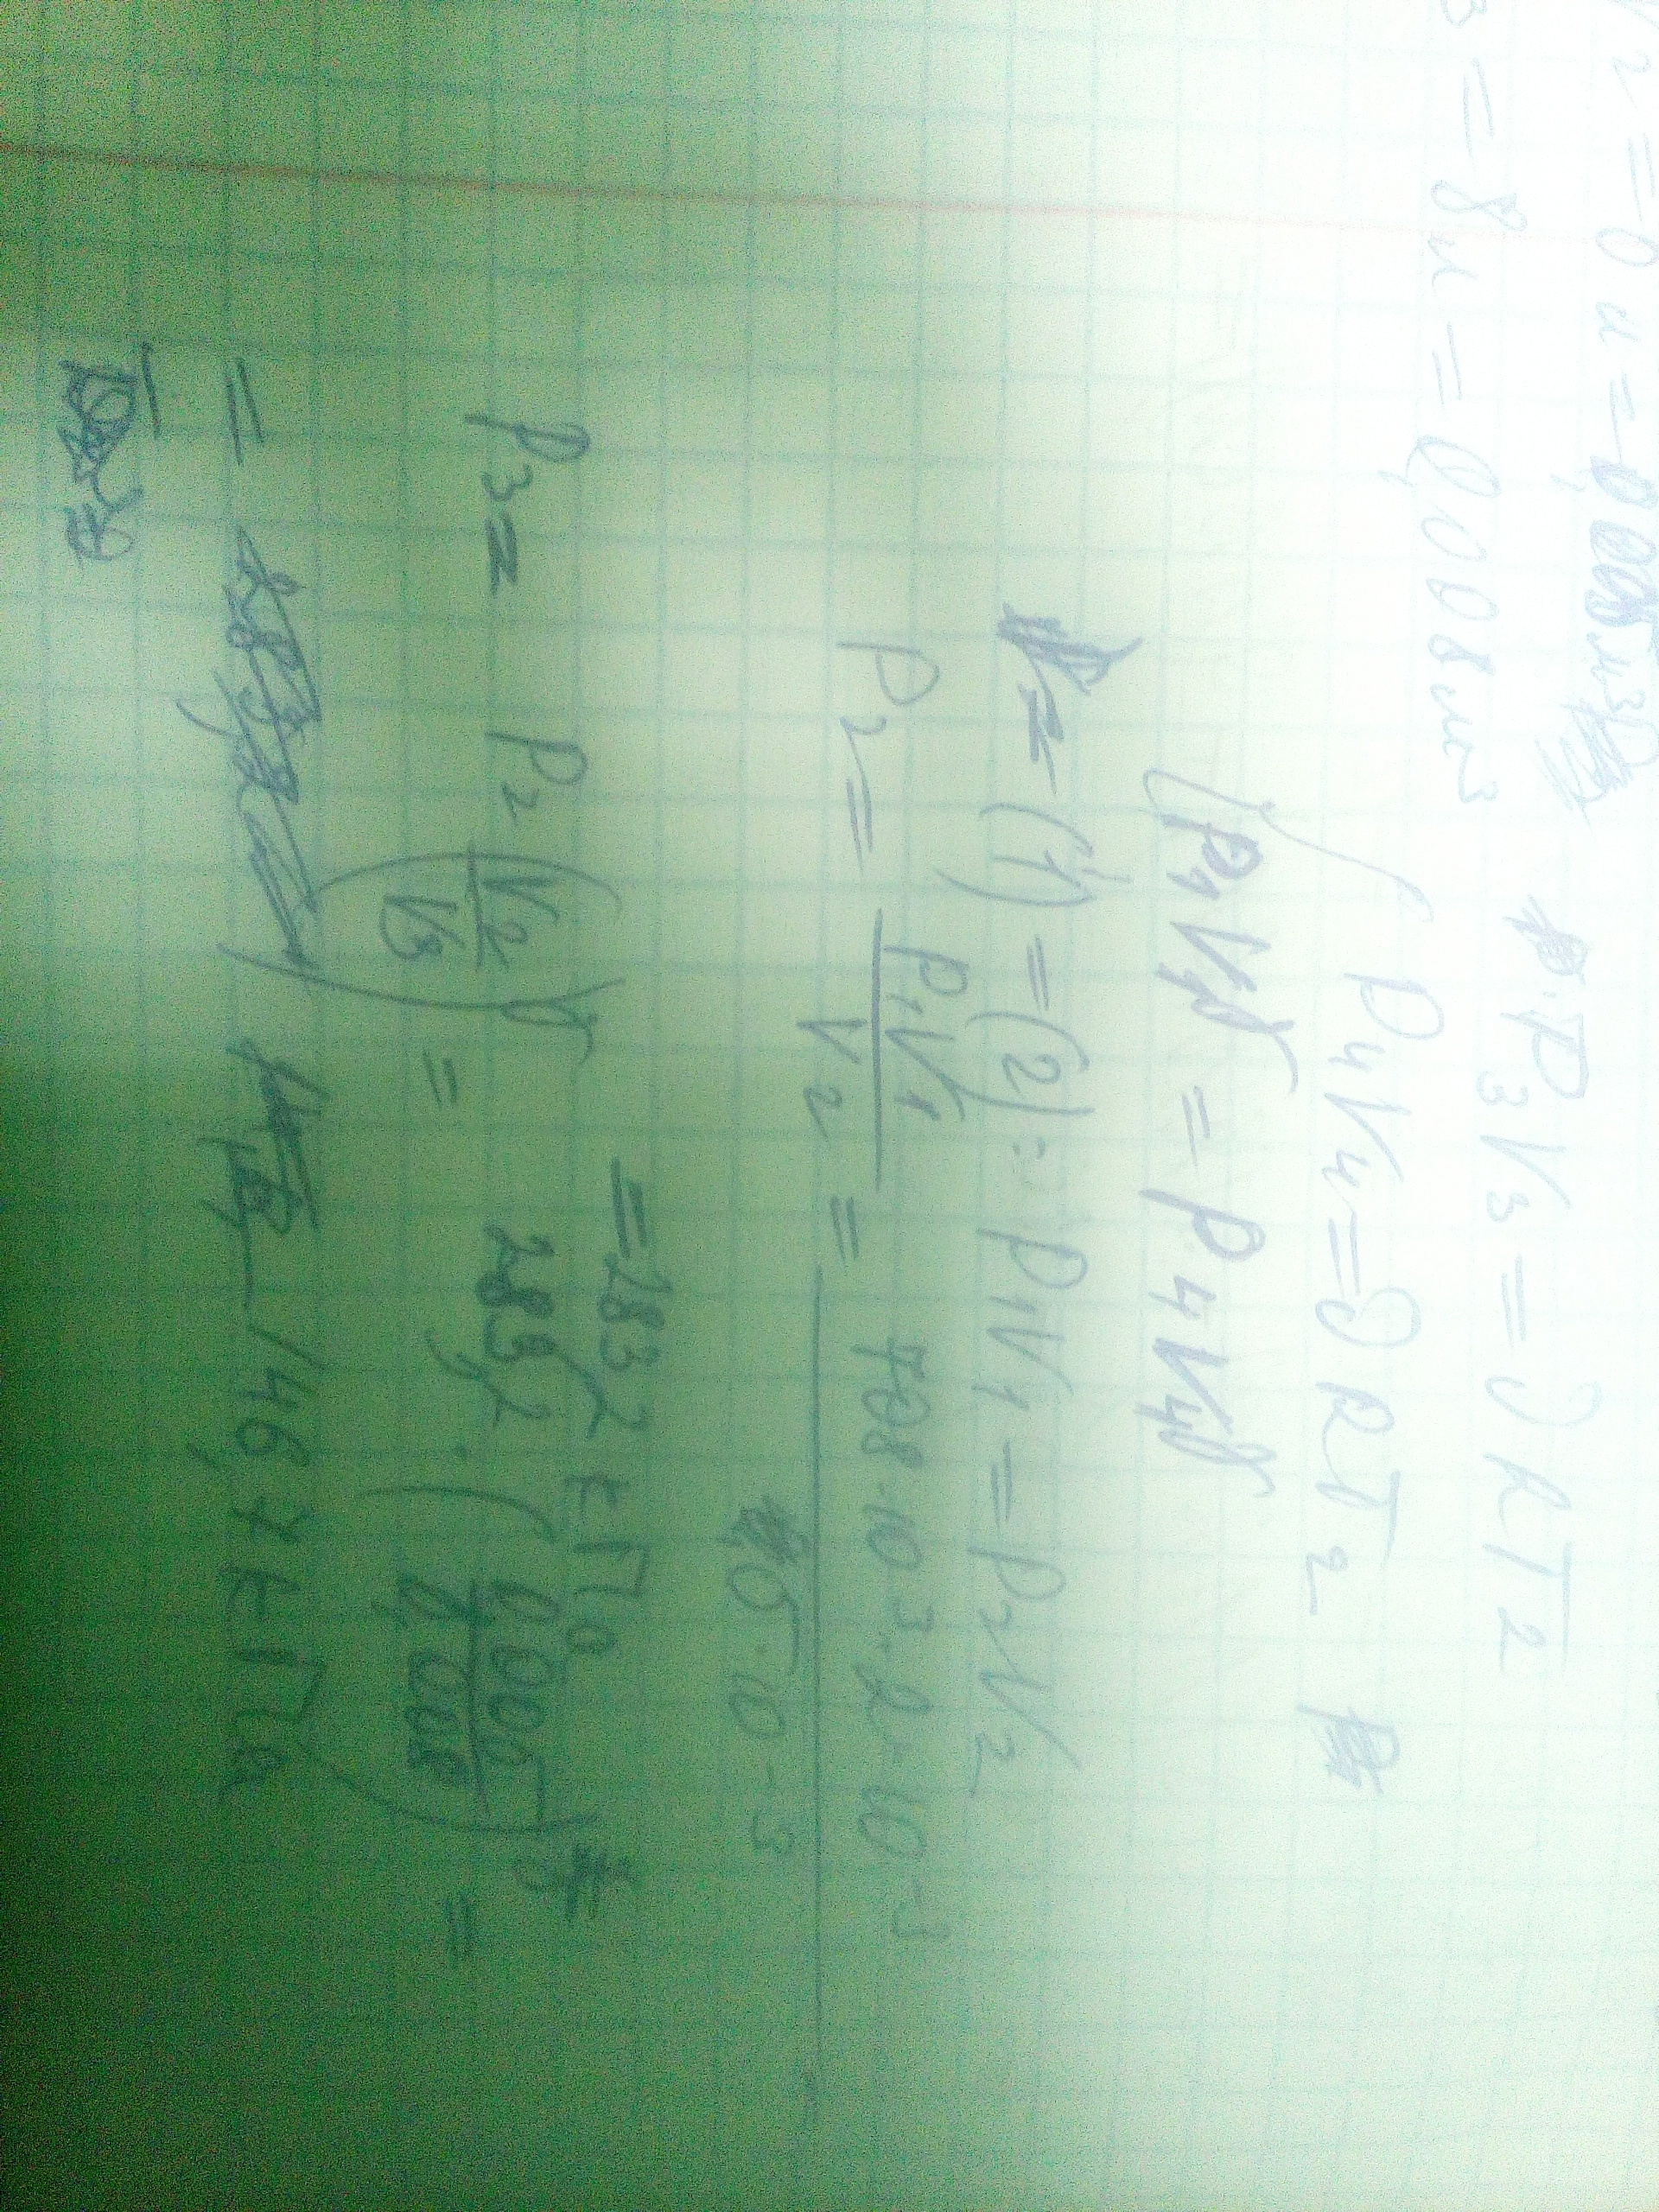 V2 = 0 л = 0,005 м³
3 = 8 л = 0,008 м³
P3V3 = νRT2
P4V4 = νRT2
P1V1γ = P4V4γ
(1) = (2): P1V1 = P2V2
P2 = P1V1 / V2 = 708·10³·2·10-3 / 5·10-3
= 283,2 кПа
P3 = P2 (V2/V3)γ = 283,2·(0,005/0,008)γ =
= 146,7 кПа